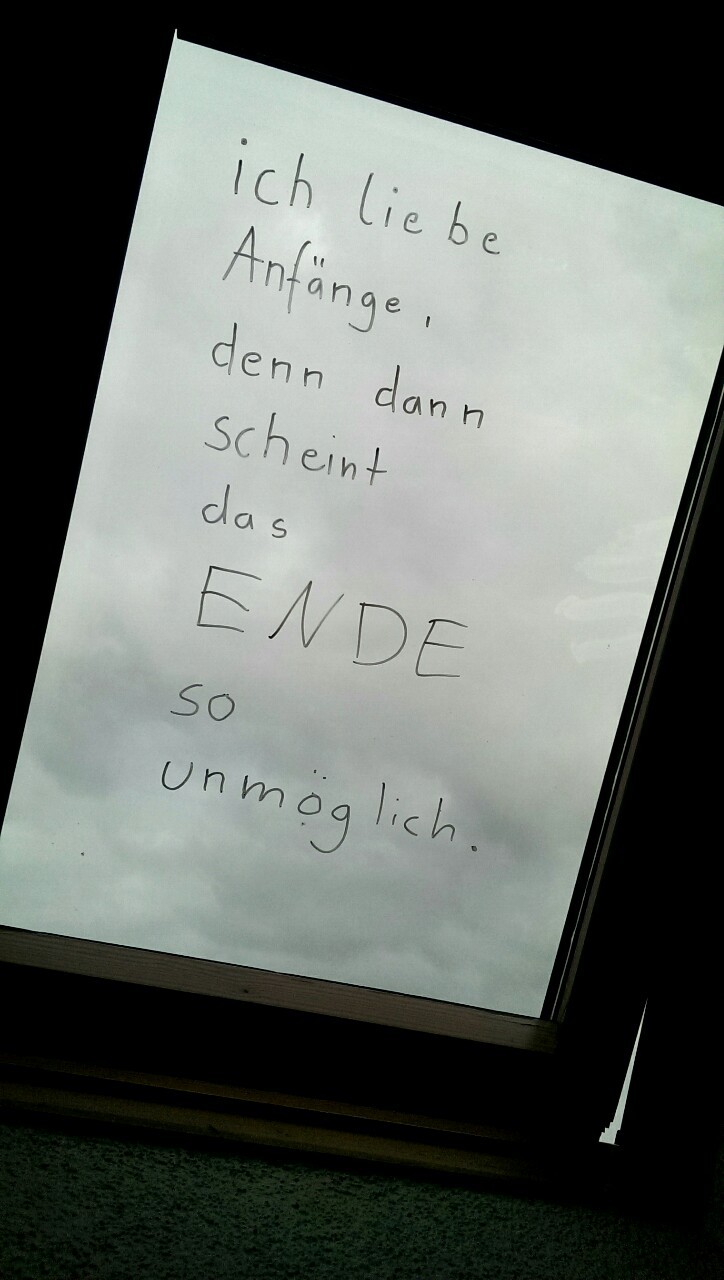 ich liebe
Anfänge,
denn dann
scheint
das
ENDE
so
unmöglich.